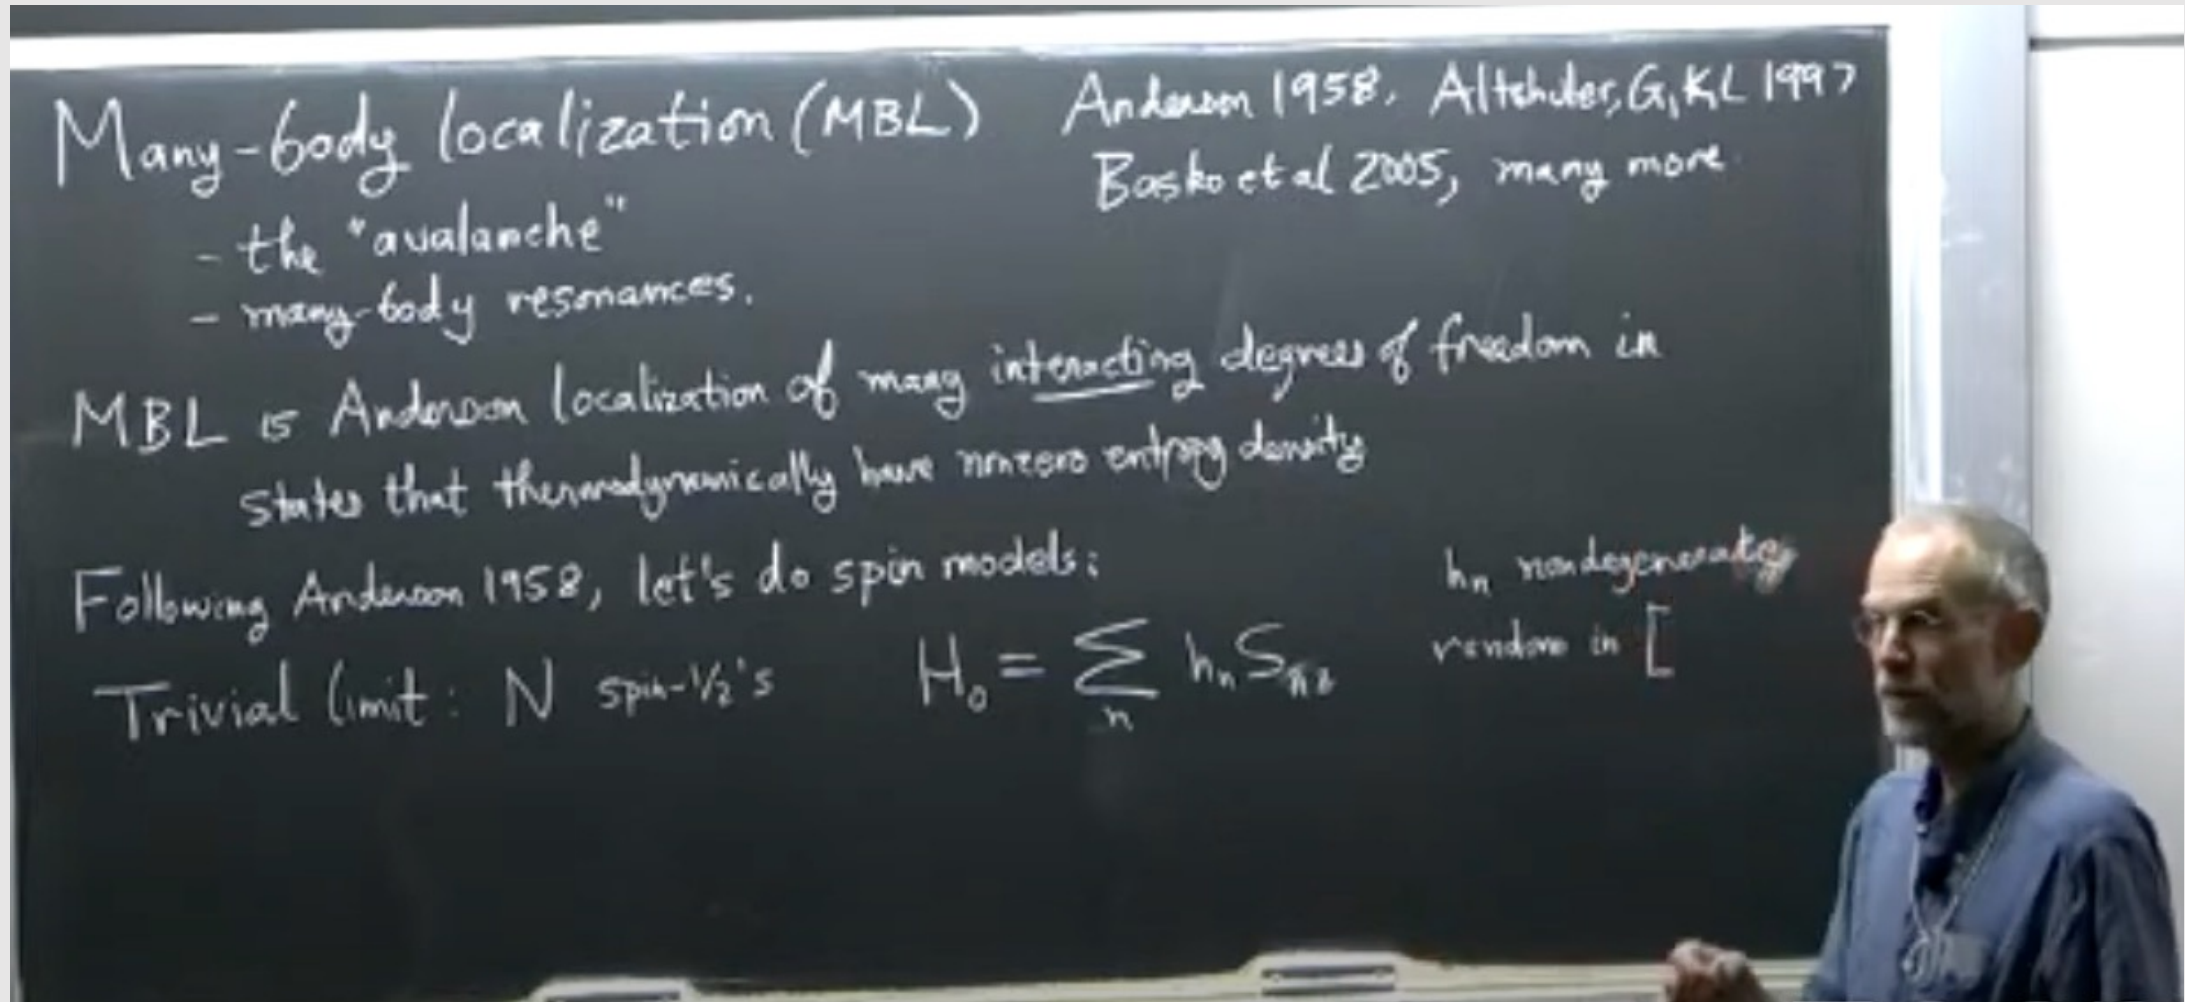 Many-body localization (MBL)
Anderson 1958, Altshuler, G, K, L 1997
Basko et al 2005, many more
- the "avalanche"
- many-body resonances.
MBL is Anderson localization of many interacting degrees of freedom in
states that thermodynamically have nonzero entropy density
Following Anderson 1958, let's do spin models:
Trivial limit: N spin-1/2's
H₀ = Σₙ hₙ S
hₙ
random in [